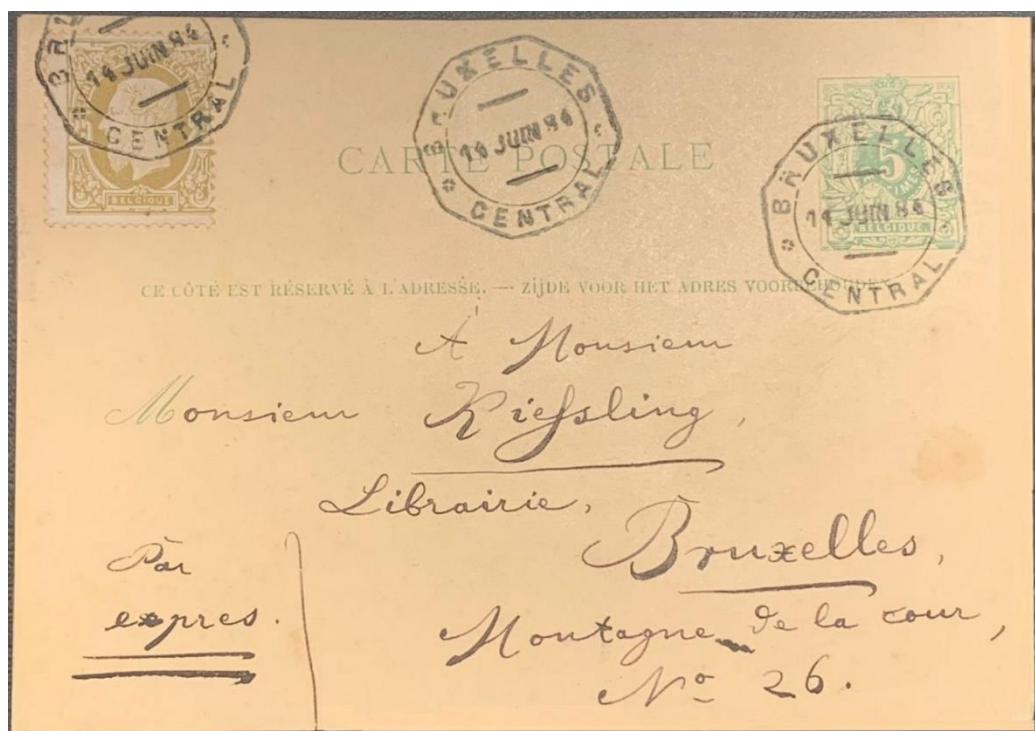 BRUXELLES
14 JUIN 84
CENTRAL
BELGIQUE
BRUXELLES
14 JUIN 84
CENTRAL
CARTE POSTALE
5
BELGIQUE
BRUXELLES
14 JUIN 84
CENTRAL
CE CÔTÉ EST RÉSERVÉ À L'ADRESSE. — ZIJDE VOOR HET ADRES VOORBEHOUDEN.
À Monsieur
Monsieur Kießling,
Librairie,
Bruxelles,
Par
expres.
Montagne de la cour,
No 26.